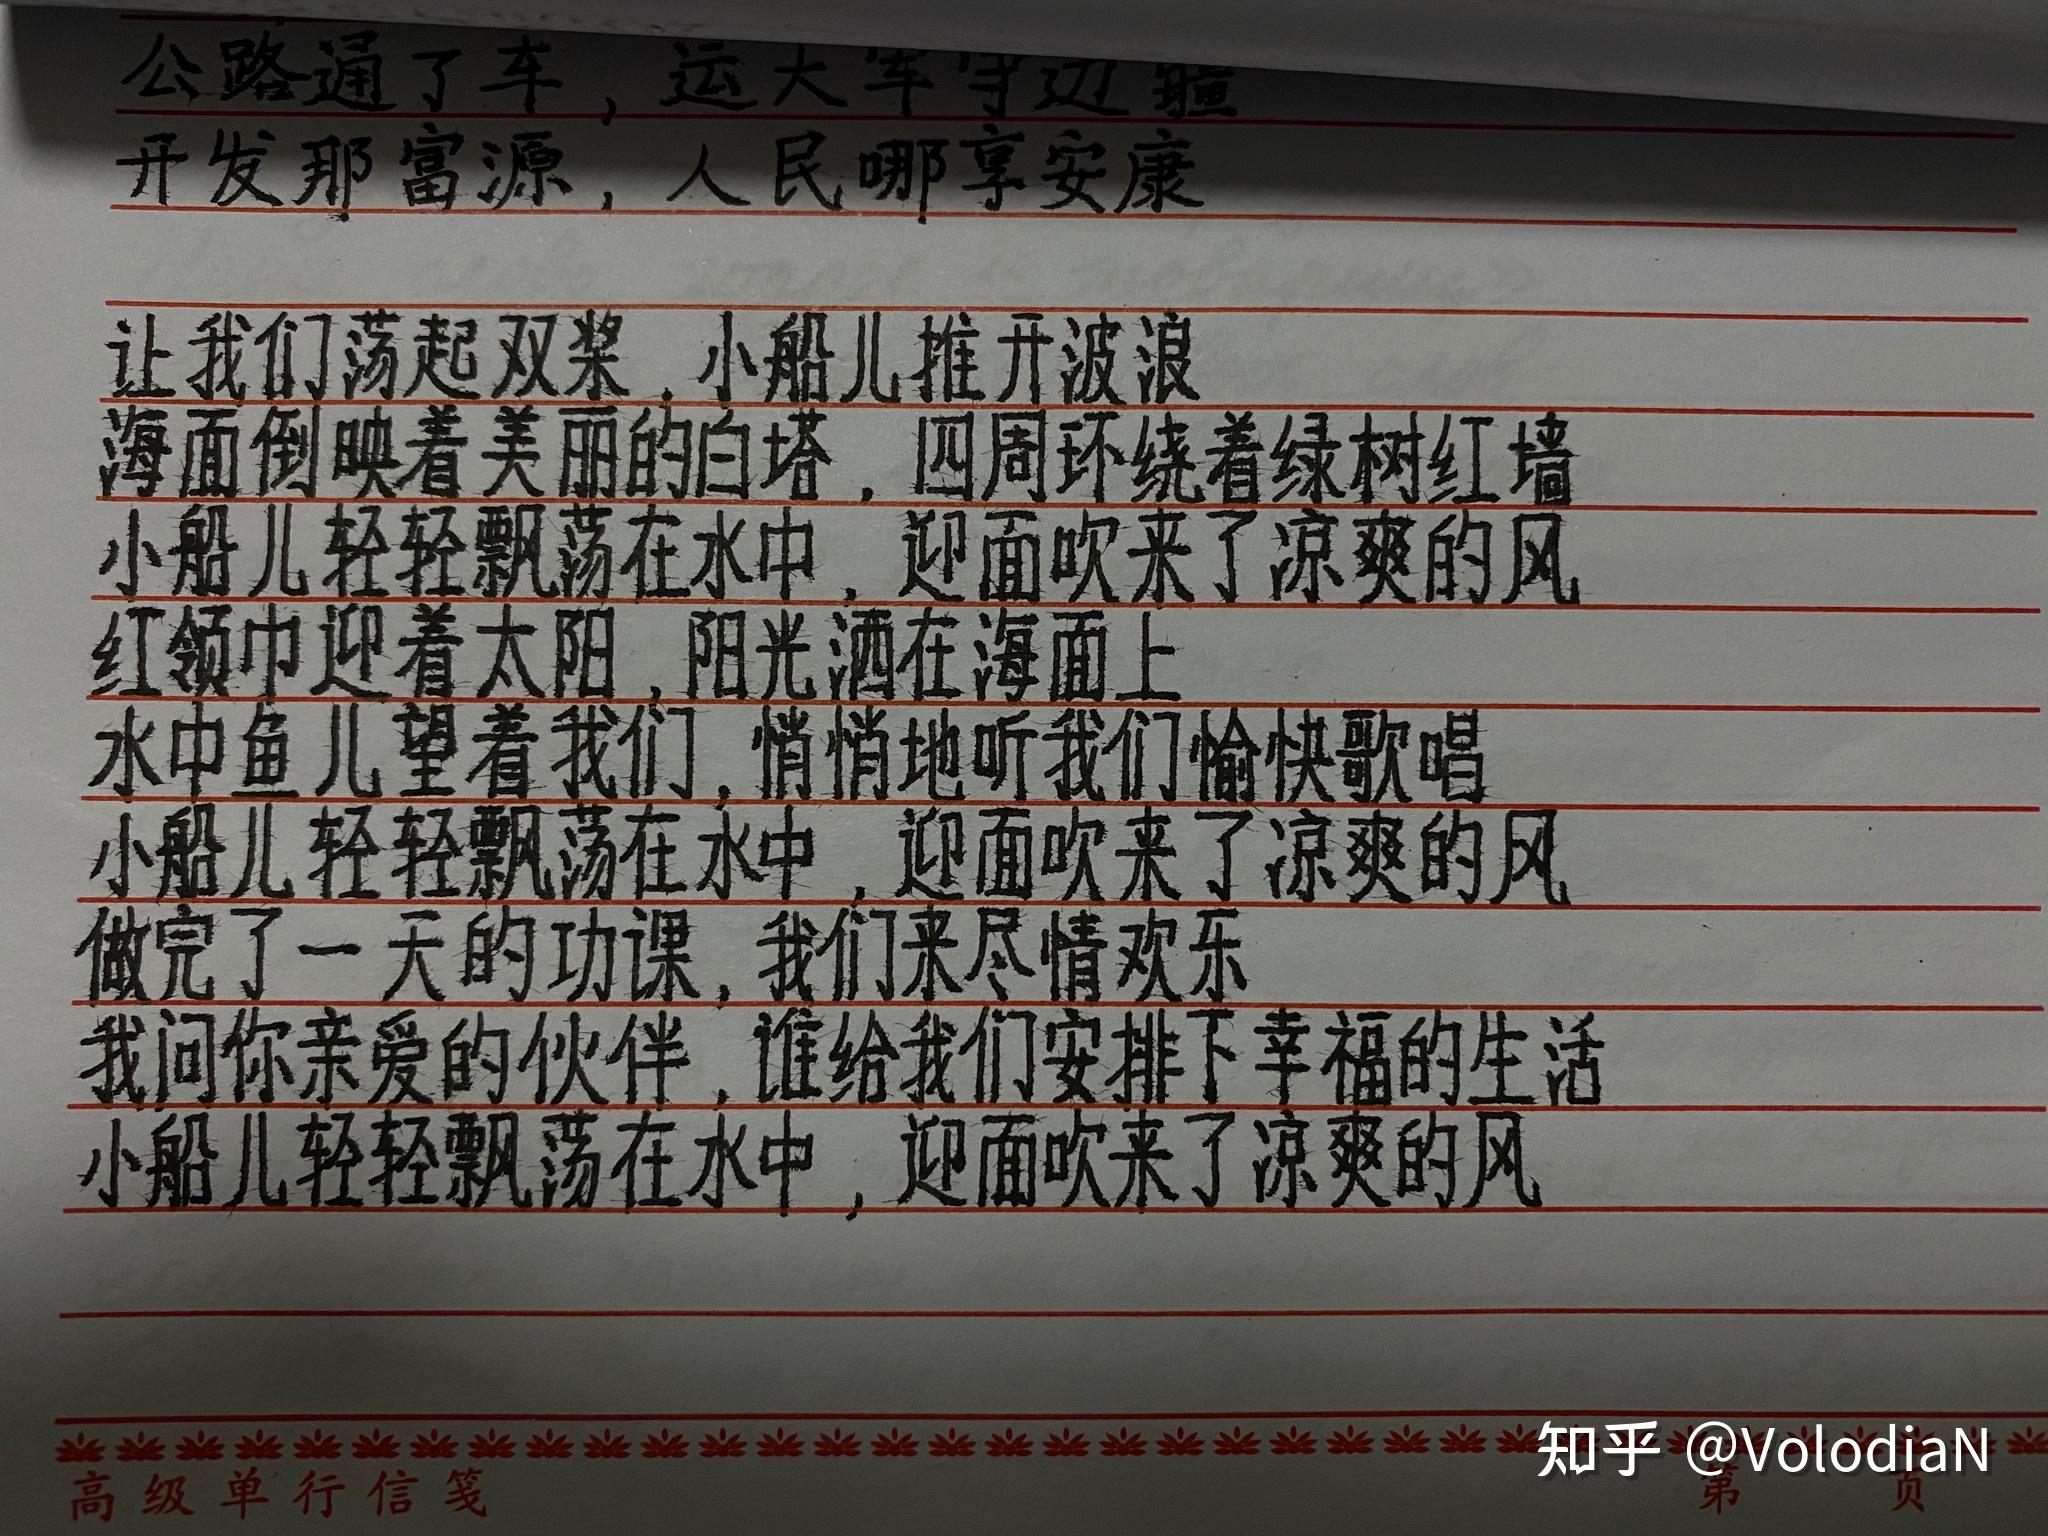 公路通了车，运大军守边疆
开发那富源，人民哪享安康
让我们荡起双桨，小船儿推开波浪
海面倒映着美丽的白塔，四周环绕着绿树红墙
小船儿轻轻飘荡在水中，迎面吹来了凉爽的风
红领巾迎着太阳，阳光洒在海面上
水中鱼儿望着我们，悄悄地听我们愉快歌唱
小船儿轻轻飘荡在水中，迎面吹来了凉爽的风
做完了一天的功课，我们来尽情欢乐
我问你亲爱的伙伴，谁给我们安排下幸福的生活
小船儿轻轻飘荡在水中，迎面吹来了凉爽的风
知乎 @VolodiaN
高级单行信笺 第 页